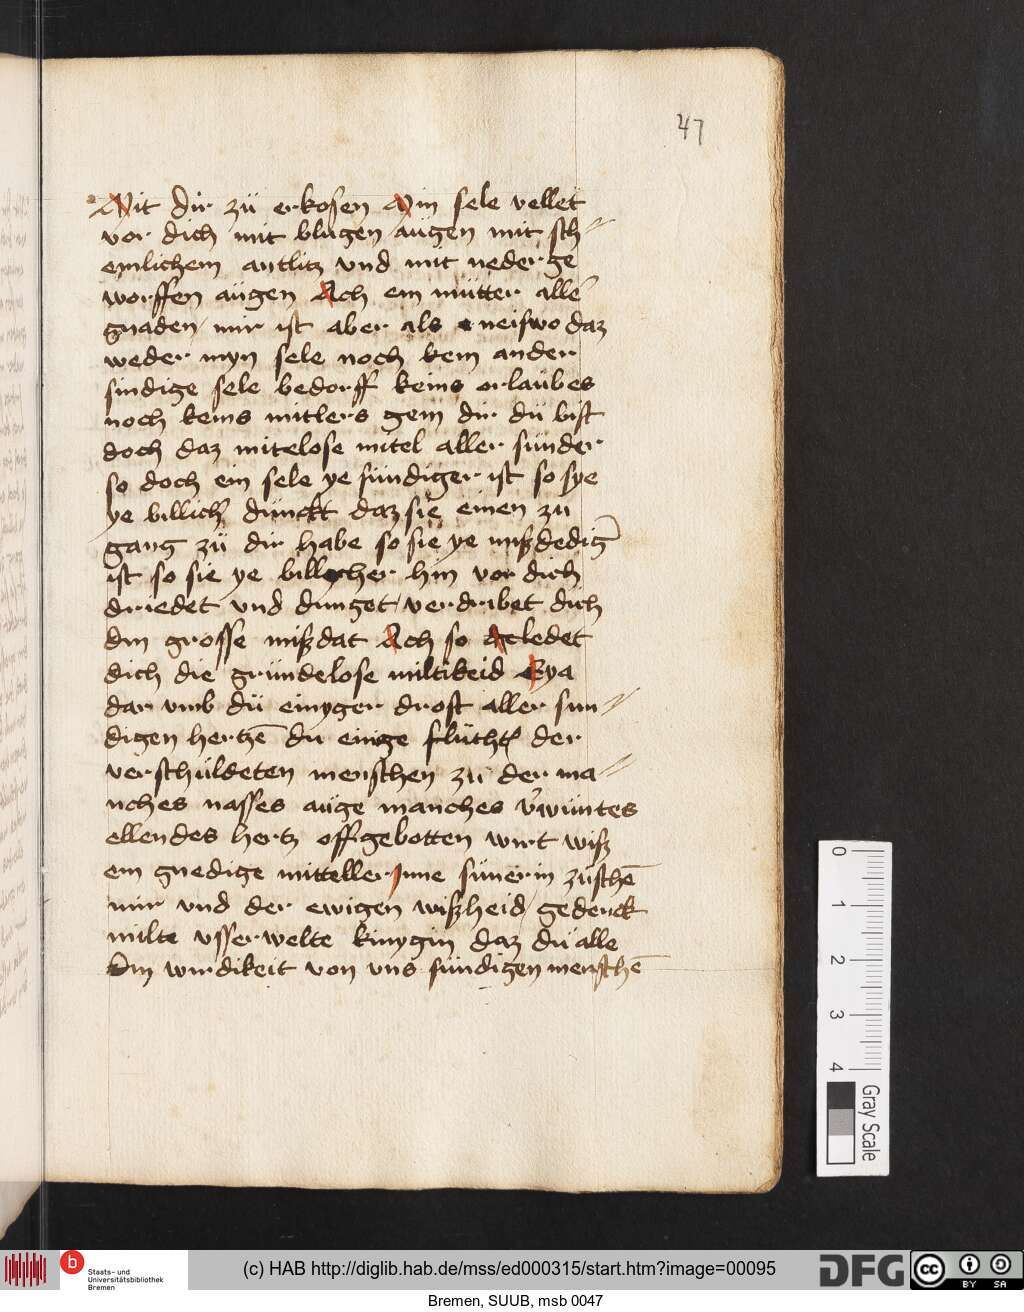 47
Mit dir zü erkosen Min sele vellet
vor dich mit blugen augen mit sch=
emlichem antlitz vnd mit neder ge
worffen augen Ach ein mütter alle
gnaden mir ist aber als neiswo daz
weder myn sele noch kein ander
sindige sele bedorff keins orlaubes
noch keins mitlers gein dir dü bist
doch daz mitelose mitel aller sünder
so doch ein sele ye sündiger ist so sye
ye billich dünckt daz sie einen zu
gang zü dir habe so sie ye mißdedig
ist so sie ye billecher hin vor dich
driedet vnd dringet verdribet dich
din grosse mißdat Ach so geledet
dich die gründelose miltikeid Eya
dar vmb dü einyger drost aller sun=
digen hertzē du einige flücht der
verschuldeten menschen zu der ma=
nches nasses auge manches v'wuntes
ellendes hertz offgebotten wirt wiß
ein gnedige mitteller Inne sünerin züschē
mir vnd der ewigen wißheid gedenck
milte vsserwelte kinygin daz dü alle
din wirdikeit von vns sündigen menschē
0 1 2 3 4
Gray Scale
b
Staats- und
Universitätsbibliothek
Bremen
(c) HAB http://diglib.hab.de/mss/ed000315/start.htm?image=00095
DFG
cc BY SA
Bremen, SUUB, msb 0047